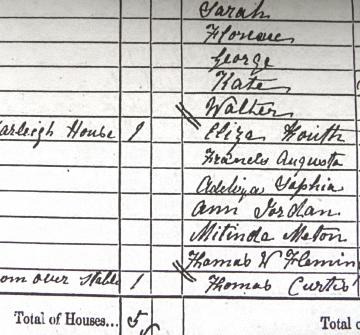 Sarah
Florence
George
Kate
Walter
arleigh House 1 Eliza Routh
Francis Augusta
Adeliza Sophia
Ann Jordan
Milinda Meton
Thomas W Flemin
om over Stable 1 Thomas Curtis
Total of Houses... 5 Total o